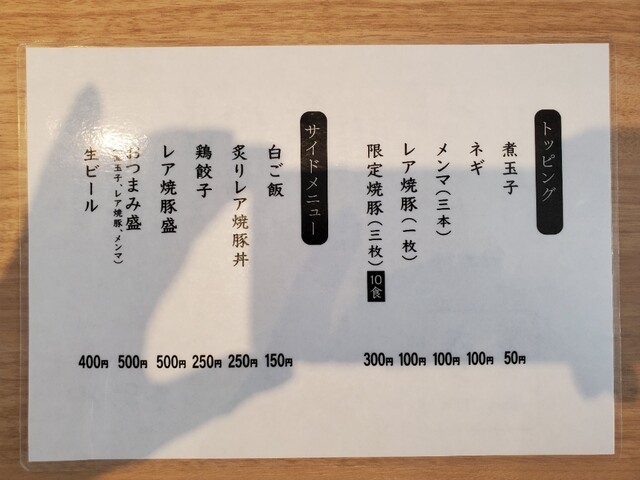 トッピング
煮玉子 50円
ネギ 100円
メンマ(三本) 100円
レア焼豚(一枚) 100円
限定焼豚(三枚) 10食 300円
サイドメニュー
白ご飯 150円
炙りレア焼豚丼 250円
鶏餃子 250円
レア焼豚盛 500円
おつまみ盛 500円
(煮玉子、レア焼豚、メンマ)
生ビール 400円